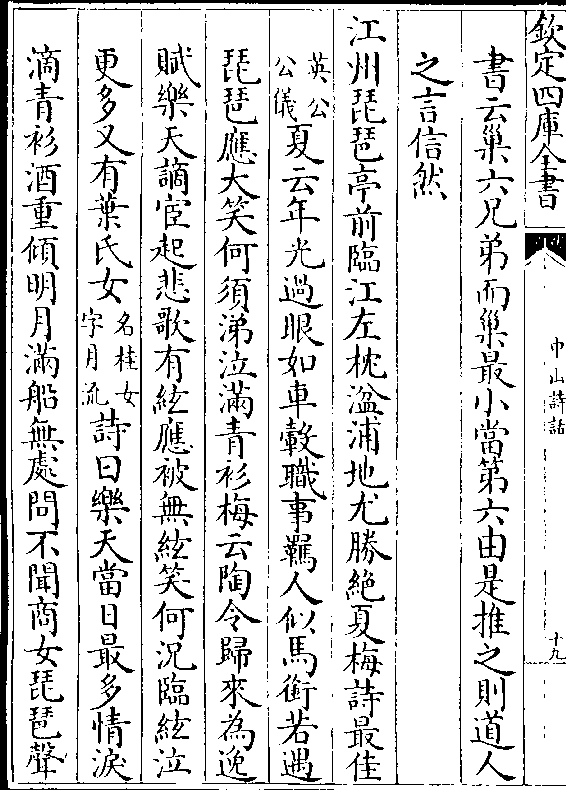 欽定四庫全書
中山詩話
十九
書云巢六兄弟而巢最小當第六由是推之則道人
之言信然
江州琵琶亭前臨江左枕湓浦地尤勝絕夏梅詩最佳
英公
公儀
夏云年光過眼如車轂職事羈人似馬銜若遇
琵琶應大笑何須涕泣滿青衫梅云陶令歸來為逸
賦樂天謫宦起悲歌有絃應被無絃笑何況臨絃泣
更多又有葉氏女
名桂女
字月流
詩曰樂天當日最多情淚
滴青衫酒重傾明月滿船無處問不聞商女琵琶聲